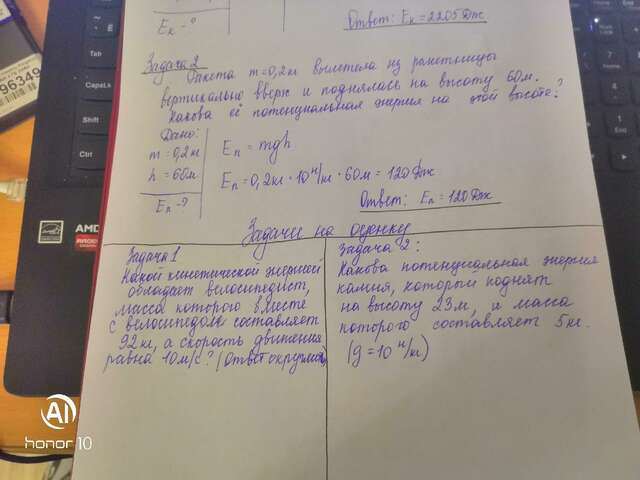 Eк - ?
Ответ: Eк = 2205 Дж
Задача 2
Ракета m = 0,2 кг вылетела из ракетницы
вертикально вверх и поднялась на высоту 60м.
Какова её потенциальная энергия на этой высоте?
Дано:
m = 0,2 кг
h = 60м
Eп - ?
Eп = mgh
Eп = 0,2кг · 10 Н/кг · 60м = 120 Дж
Ответ: Eп = 120 Дж
Задачи на оценку
Задача 1
Какой кинетической энергией
обладает велосипедист,
масса которого вместе
с велосипедом составляет
92 кг, а скорость движения
равна 10 м/с? (Ответ округлить)
Задача 2:
Какова потенциальная энергия
камня, который поднят
на высоту 23м, и масса
которого составляет 5 кг.
(g = 10 Н/кг)
96349
Tab
CapsLk
Shift
Ctrl
AMD
RADEON
AI
honor 10